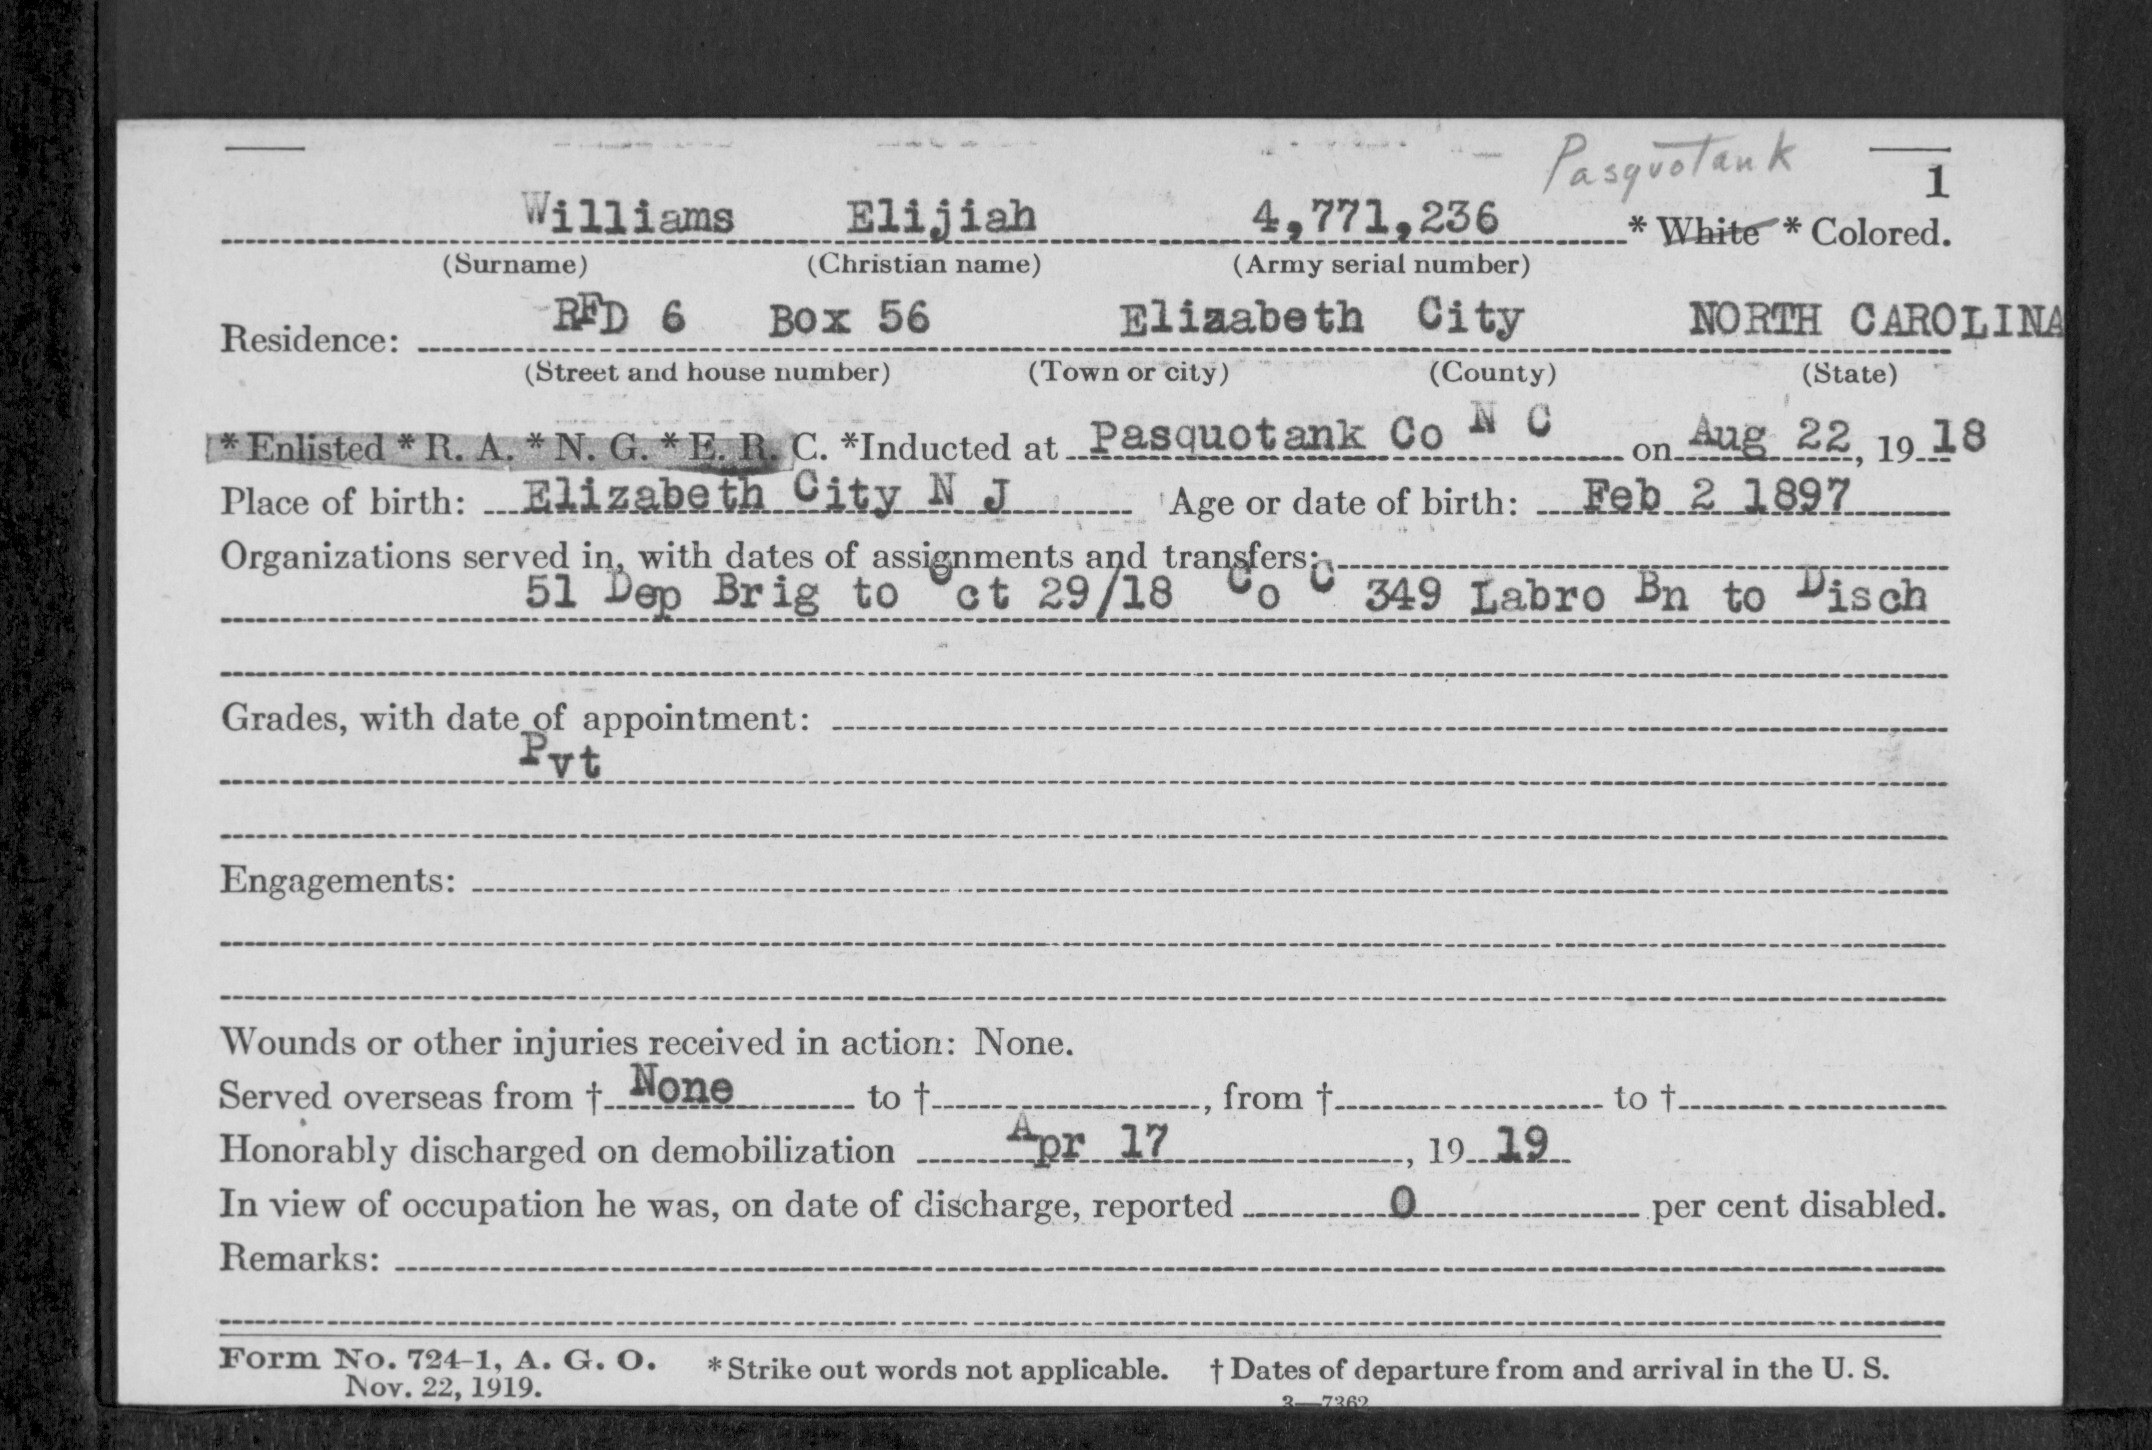 Pasquotank
1
Williams Elijiah 4,771,236 * White * Colored.
(Surname) (Christian name) (Army serial number)
RFD 6 Box 56 Elizabeth City NORTH CAROLINA
Residence:
(Street and house number) (Town or city) (County) (State)
* Enlisted * R. A. * N. G. * E. R. C. *Inducted at Pasquotank Co N C on Aug 22, 19 18
Place of birth: Elizabeth City N J Age or date of birth: Feb 2 1897
Organizations served in, with dates of assignments and transfers:
51 Dep Brig to Oct 29/18 Co C 349 Labro Bn to Disch
Grades, with date of appointment:
Pvt
Engagements:
Wounds or other injuries received in action: None.
Served overseas from † None to †, from † to †
Honorably discharged on demobilization Apr 17, 19 19
In view of occupation he was, on date of discharge, reported 0 per cent disabled.
Remarks:
Form No. 724-1, A. G. O. * Strike out words not applicable. † Dates of departure from and arrival in the U. S.
Nov. 22, 1919.
3—7362